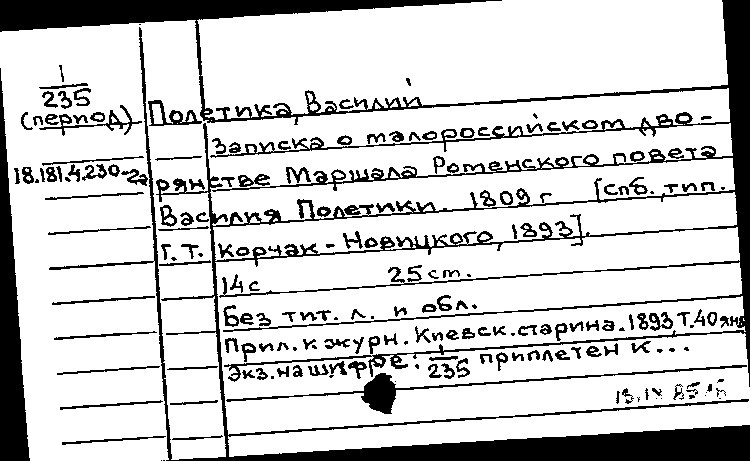 1
235
(период)
18.181.4.230-2а
Полетика, Василий
Записка о малороссийском дво-
рянстве Маршала Роменского повета
Василия Полетики. 1809 г [Спб., тип.
Г. Т. Корчак-Новицкого, 1893].
14 с. 25 cm.
Без тит. л. и обл.
Прил. к журн. Киевск. старина. 1893, Т. 40 янв
Экз. на шифре: 1/235 приплетен к...